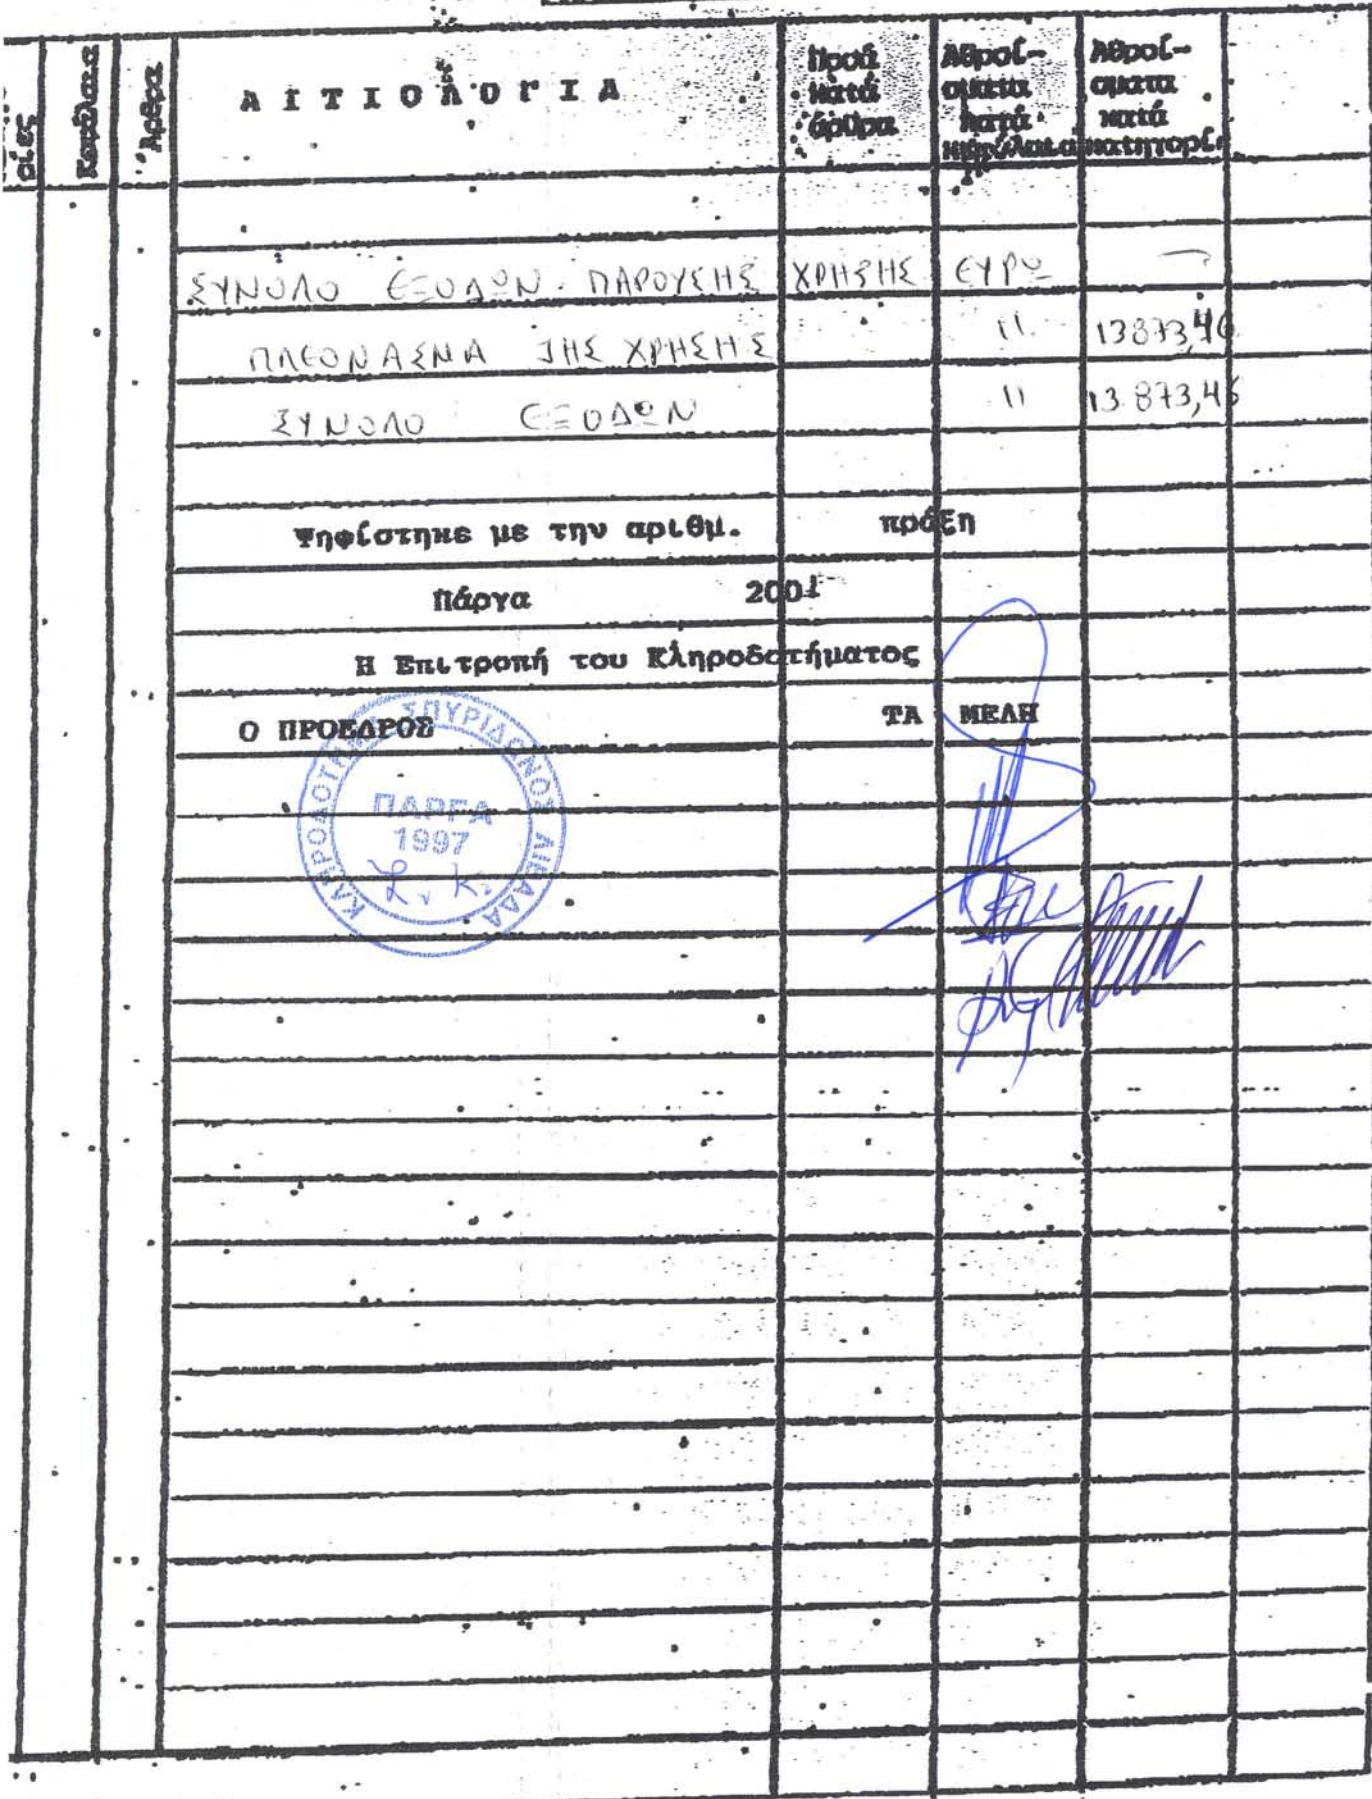 Κεφάλαια
Άρθρα
ΑΙΤΙΟΛΟΓΙΑ
Ποσά κατά άρθρα
Αθροί-σματα κατά κεφάλαια
Αθροί-σματα κατά κατηγορί
ΣΥΝΟΛΟ ΕΞΟΔΩΝ ΠΑΡΟΥΣΗΣ ΧΡΗΣΗΣ ΕΥΡΩ —
ΠΛΕΟΝΑΣΜΑ ΤΗΣ ΧΡΗΣΗΣ 11 13873,46
ΣΥΝΟΛΟ ΕΞΟΔΩΝ 11 13.873,46
Ψηφίστηκε με την αριθμ. πράξη
Πάργα 2001
Η Επιτροπή του Κληροδοτήματος
Ο ΠΡΟΕΔΡΟΣ ΤΑ ΜΕΛΗ
ΚΛΗΡΟΔΟΤΗΜΑ ΣΠΥΡΙΔΩΝΟΣ ΛΙΒΑΔΑ
ΠΑΡΓΑ
1997